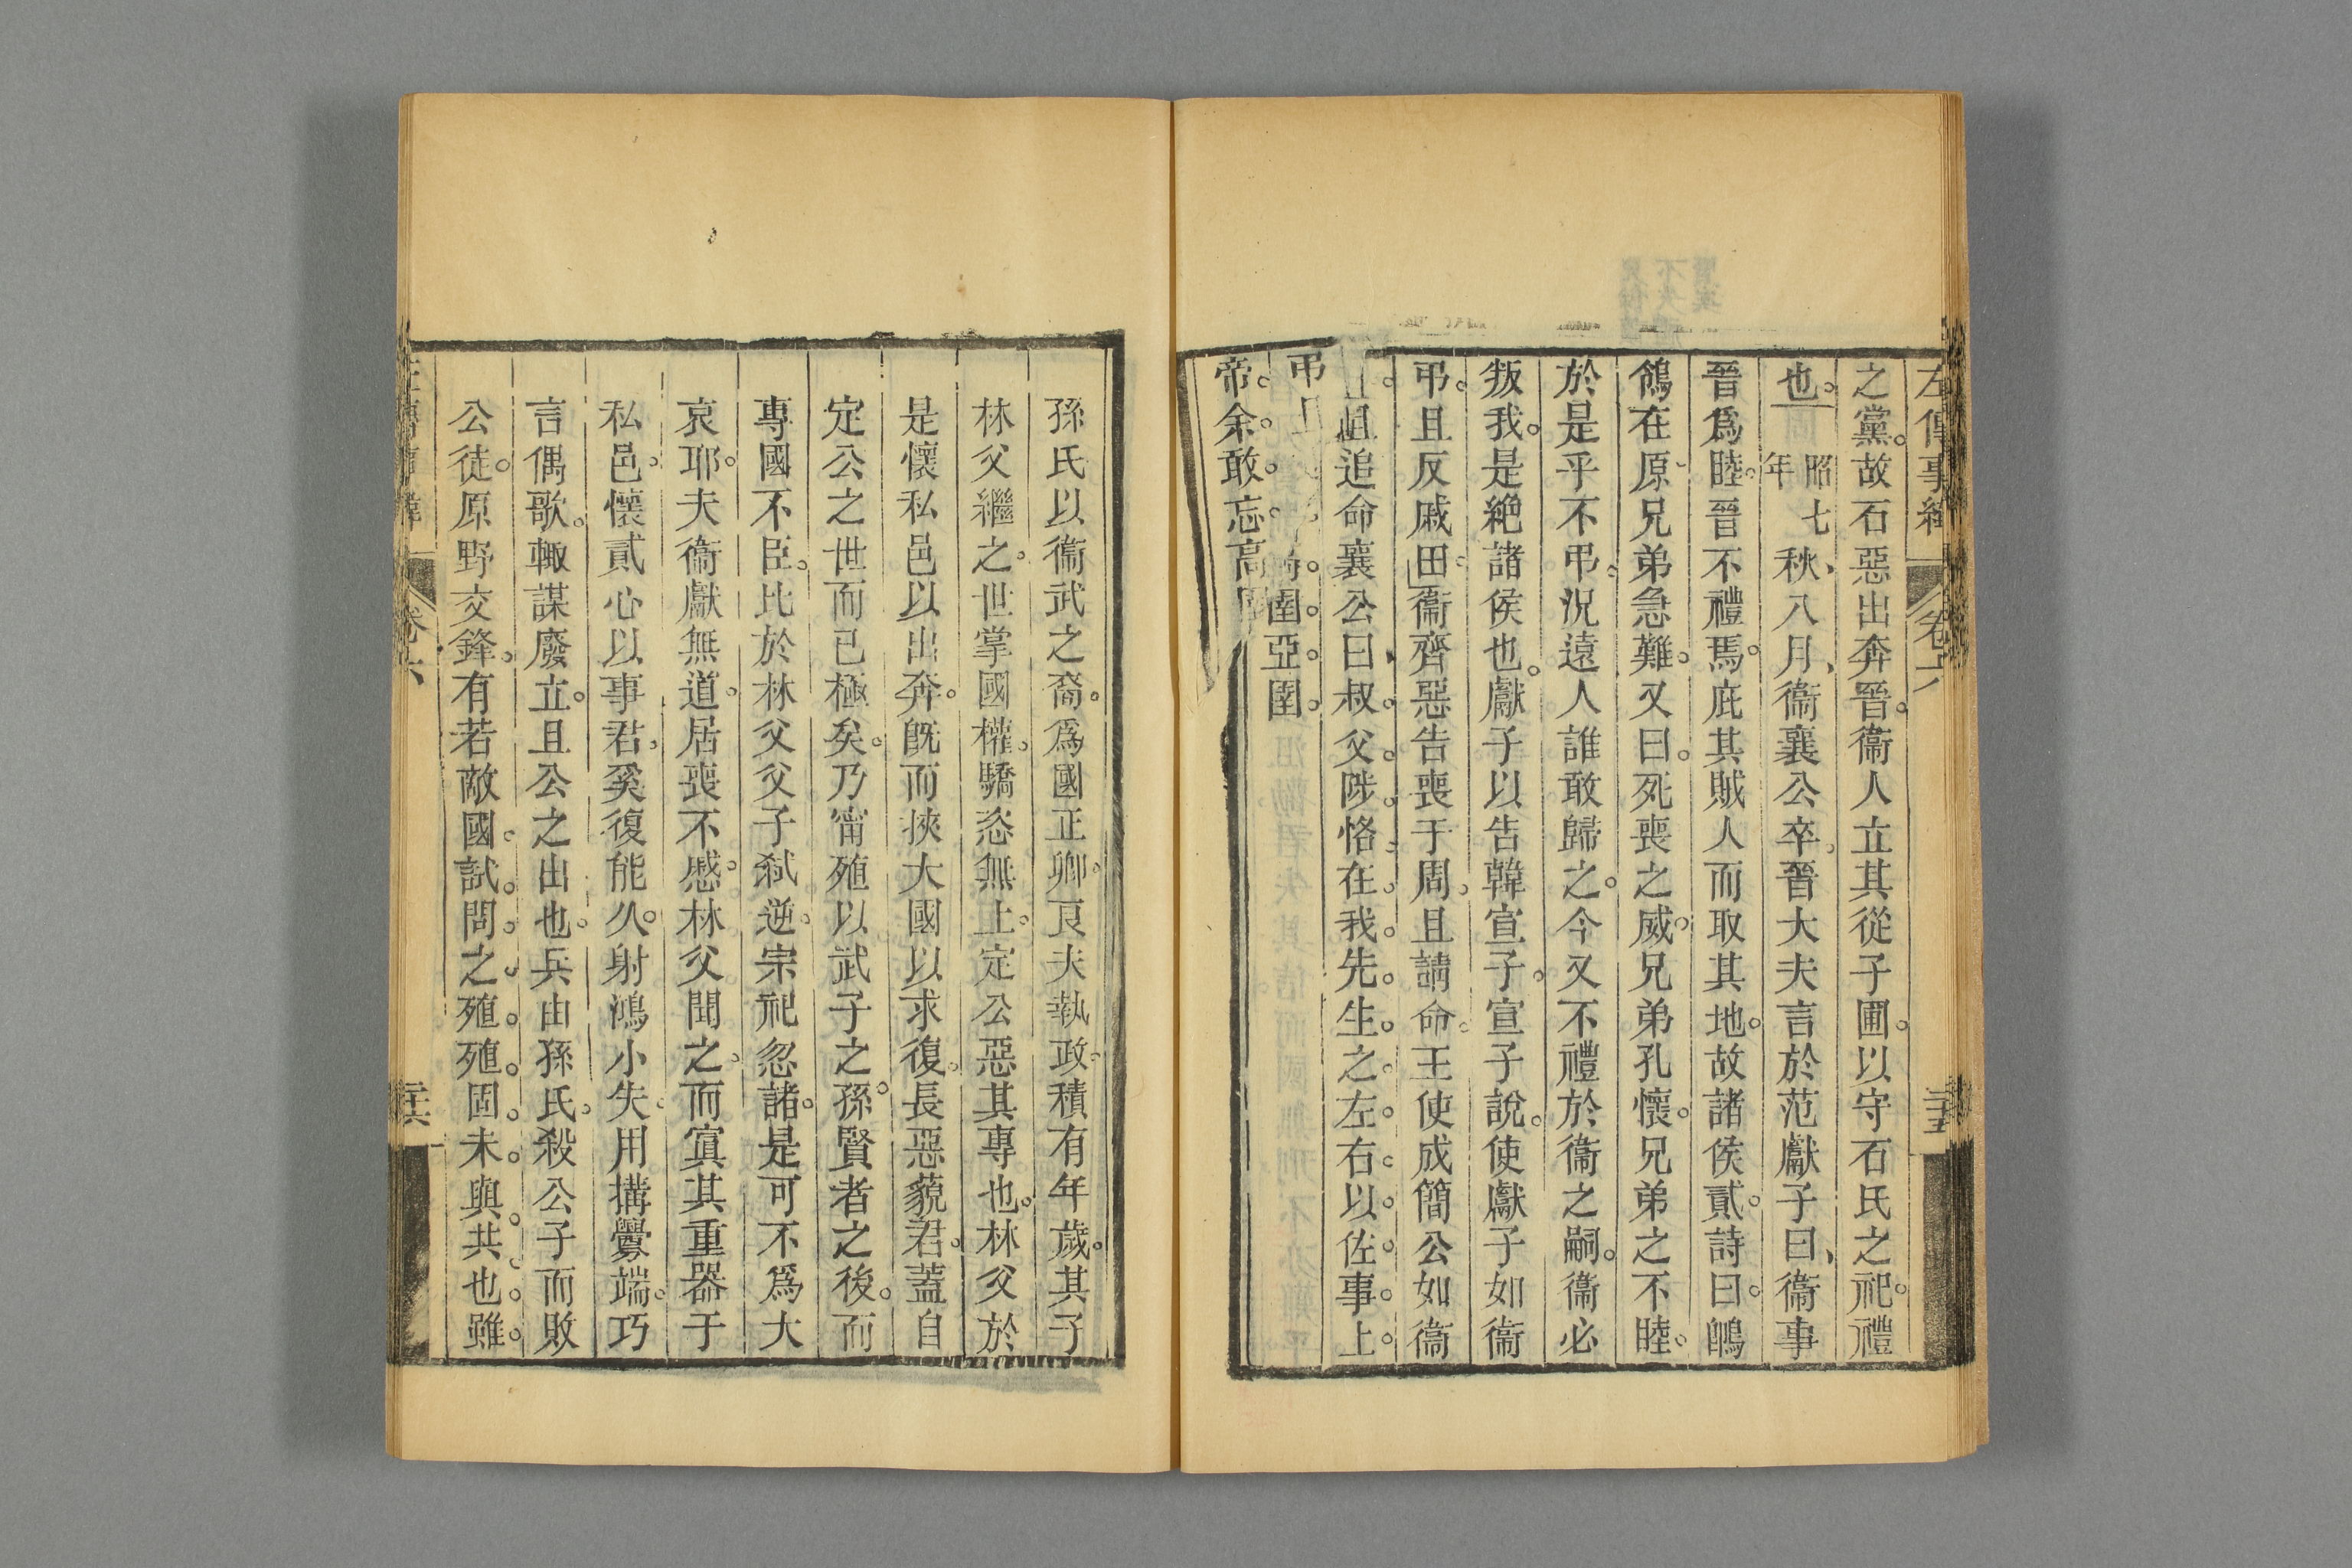 左傳事緯
卷六
三五
之黨故石惡出奔晉衞人立其從子圃以守石氏之祀禮
也
昭七
年
秋八月衞襄公卒晉大夫言於范獻子曰衞事
晉爲睦晉不禮焉庇其賊人而取其地故諸侯貳詩曰鴟
鴒在原兄弟急難又曰死喪之威兄弟孔懷兄弟之不睦
於是乎不弔況遠人誰敢歸之今又不禮於衞之嗣衞必
叛我是絕諸侯也獻子以告韓宣子宣子說使獻子如衞
弔且反戚田衞齊惡告喪于周且請命王使成簡公如衞
且追命襄公曰叔父陟恪在我先生之左右以佐事上
弔
帝余敢忘高圉亞圉
孫氏以衞武之裔爲國正卿良夫執政積有年歲其子
林父繼之世掌國權驕恣無上定公惡其專也林父於
是懷私邑以出奔既而挾大國以求復長惡藐君蓋自
定公之世而已極矣乃甯殖以武子之孫賢者之後而
專國不臣比於林父父子弒逆宗祀忽諸是可不爲大
哀耶夫衞獻無道居喪不慼林父聞之而寘其重器于
私邑懷貳心以事君奚復能久射鴻小失用搆釁端巧
言偶歌輙謀廢立且公之出也兵由孫氏殺公子而敗
公徒原野交鋒有若敵國試問之殖殖固未與共也雖
卷六